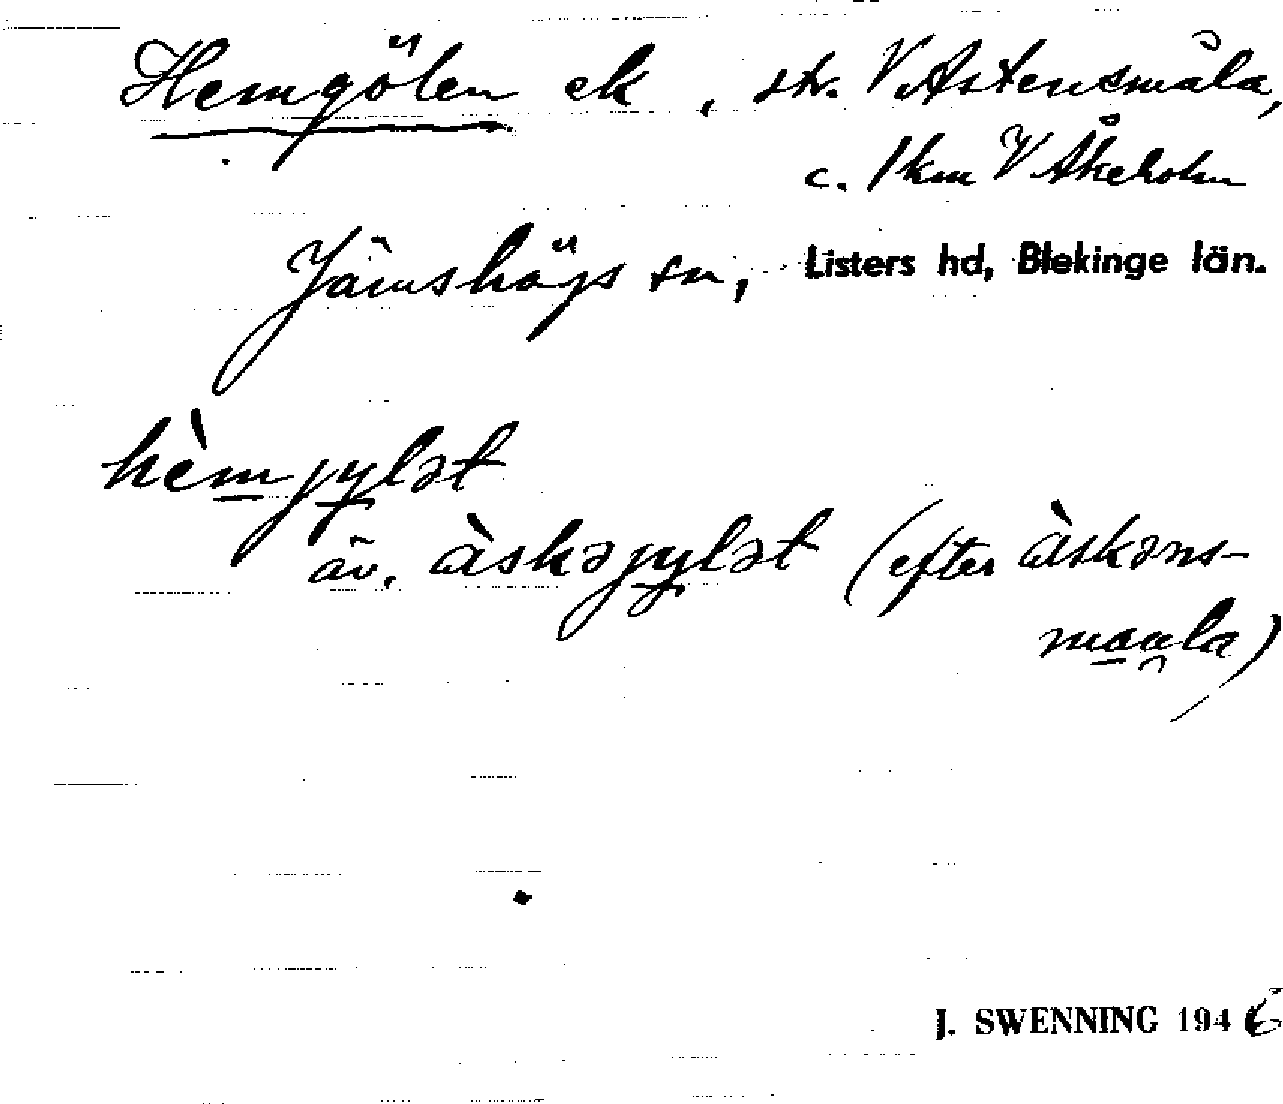 Hemgölen ek, str. V Astensmåla,
c. 1 km V Åkeholm
Jämshögs sn, Listers hd, Blekinge län.
hèmjylət
äv. àskəjylət (efter àskəns-
maala)
J. SWENNING 1946